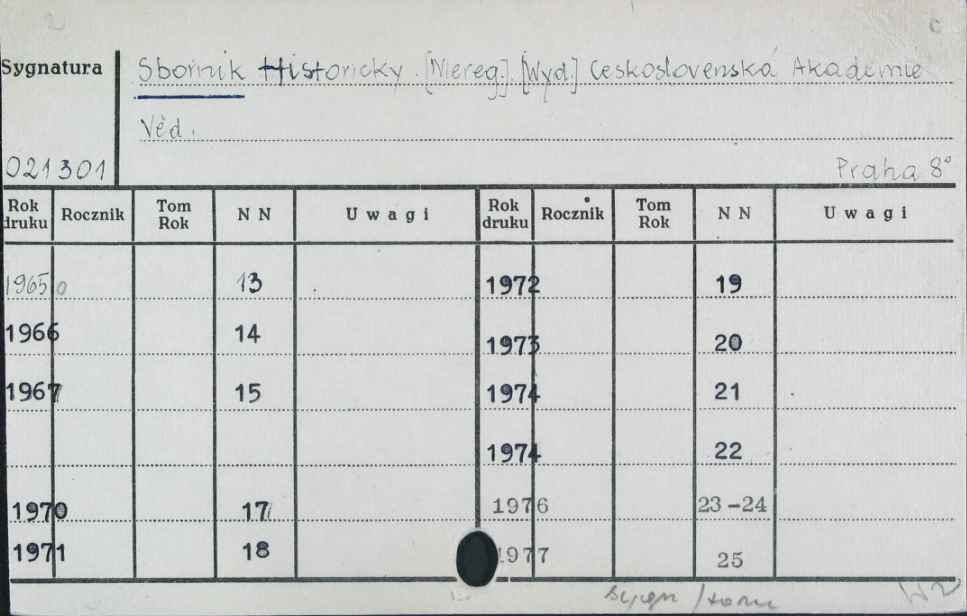 2 c
Sygnatura Sbornik Historicky. [Niereg.]. [Wyd.] Československá Akademie
Věd.
021301 Praha 8°
Rok druku Rocznik Tom Rok NN Uwagi Rok druku Rocznik Tom Rok NN Uwagi
1965 13 1972 19
1966 14 1973 20
1967 15 1974 21
1974 22
1970 17 1976 23-24
1971 18 1977 25